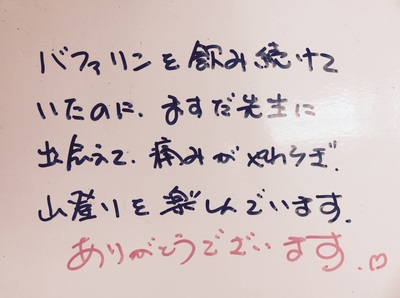 バファリンを飲み続けて
いたのに、ますだ先生に
出会えて、痛みがやわらぎ、
山登りを楽しんでいます。
ありがとうございます。♡